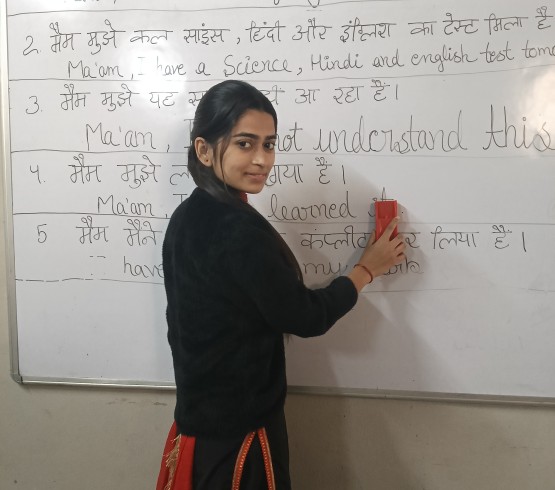 2. मैम मुझे कल साइंस, हिंदी और इंग्लिश का टेस्ट मिला है
Ma'am, I have a Science, Hindi and english test tom
3. मैम मुझे यह आ रहा है।
Ma'am, not understand this
4. मैम मुझे गया है।
Ma'am, learned
5 मैम मैंने कंप्लीट कर लिया है।
have my